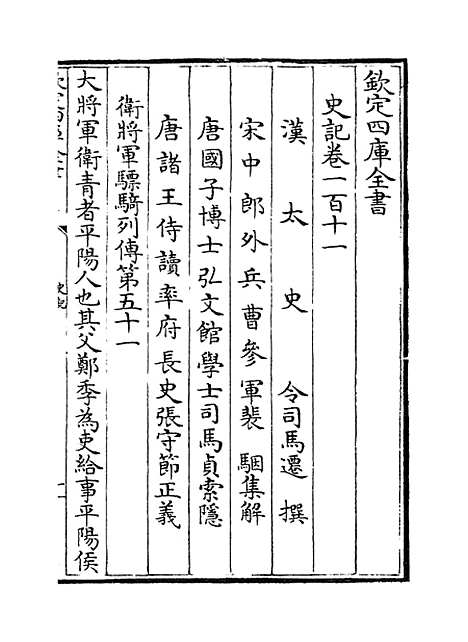 欽定四庫全書
史記卷一百十一
漢太史令司馬遷撰
宋中郎外兵曹參軍裴駰集解
唐國子博士弘文館學士司馬貞索隱
唐諸王侍讀率府長史張守節正義
衛將軍驃騎列傳第五十一
大將軍衛青者平陽人也其父鄭季為吏給事平陽侯